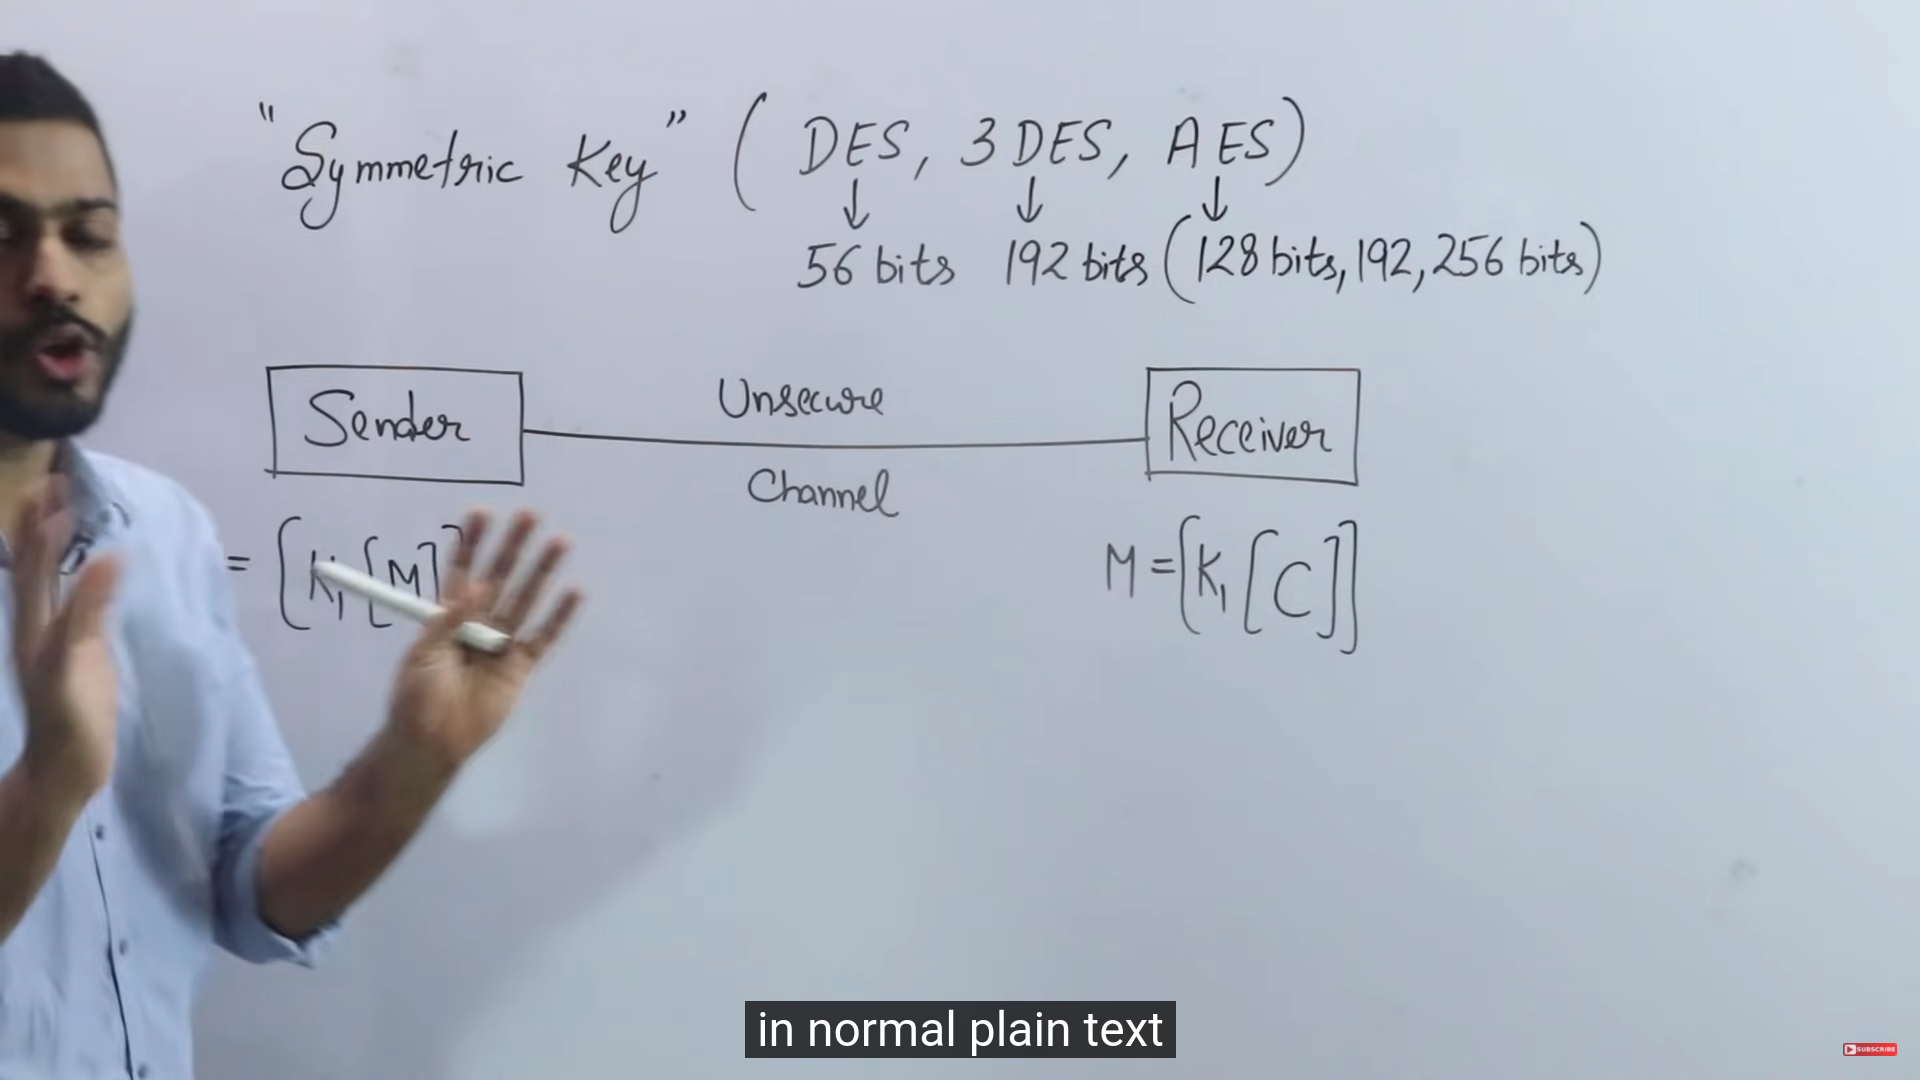 "Symmetric Key" ( DES, 3DES, AES)
↓ ↓ ↓
56 bits 192 bits (128 bits, 192, 256 bits)
Sender
Unsecure
Channel
Receiver
= [K₁[M]
M = [K₁[C]]
in normal plain text
SUBSCRIBE